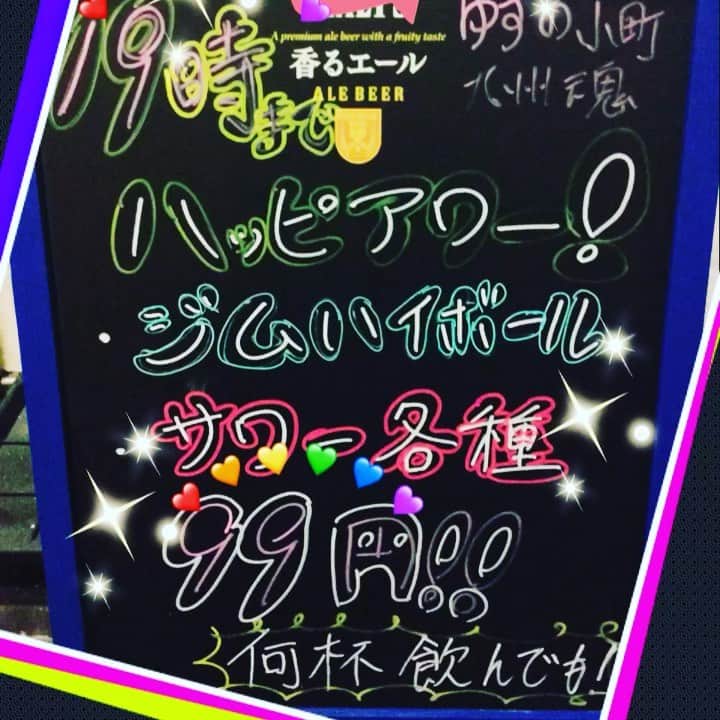 A premium ale beer with a fruity taste
香るエール
ALE BEER
ゆずの小町
九州魂
19時まで
ハッピアワー!
・ジムハイボール
・サワー各種
99円!!
何杯飲んでも!!